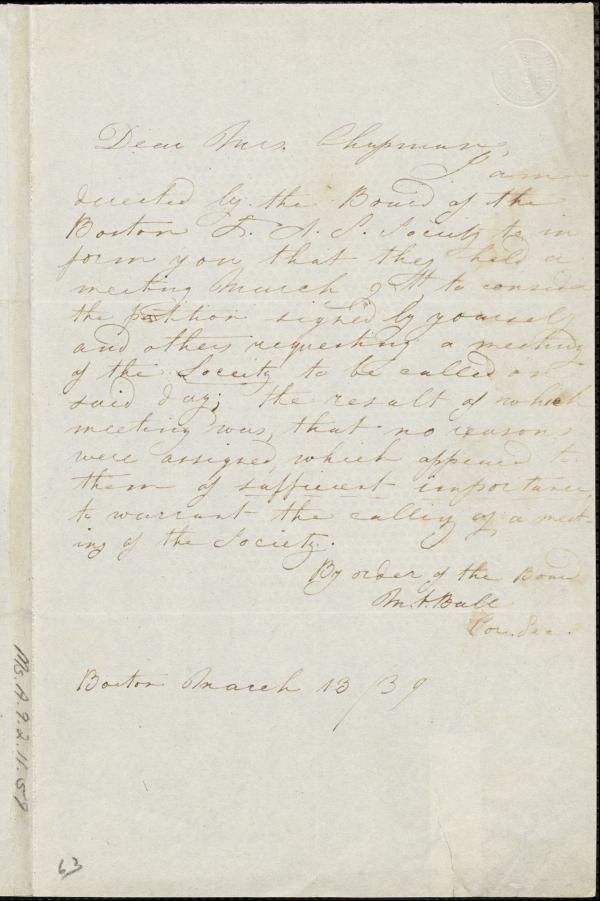 Dear Mrs. Chapman,
I am
directed by the Board of the
Boston F. A. S. Society to in
form you that they held a
meeting March 9th to consider
the petition signed by yourself
and others requesting a meeting
of the Society to be called on
said day; the result of which
meeting was, that no reasons
were assigned, which appeared to
them of sufficient importance,
to warrant the calling of a meet-
ing of the Society.
By order of the Board
M. A. Ball
Cor. Sec.
Boston March 13 / 39
Ms. A. 9. 2. 11. 59
63